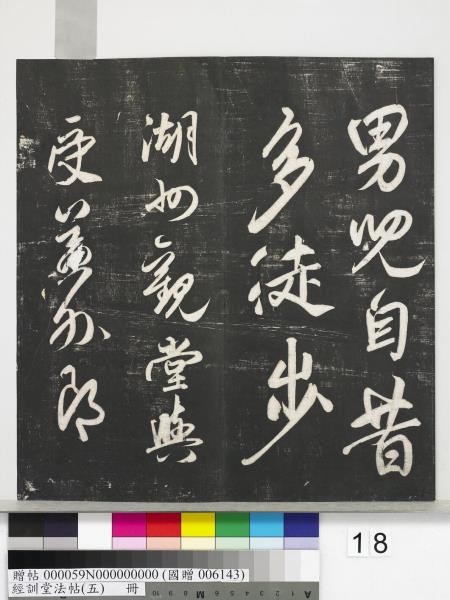 男兒自昔
多徒步
湖州觀堂與
受益外郎
18
贈帖 000059N000000000 (國贈 006143)
經訓堂法帖(五) 冊